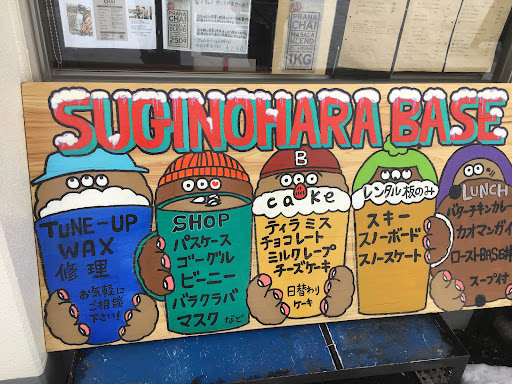 PRANA
CHAI
PRANA
CHAI
MASALA
BLEND
1KG
SUGINOHARA BASE
TUNE-UP
WAX
修理
お気軽に
ご相談
下さい!
SHOP
パスケース
ゴーグル
ビーニー
バラクラバ
マスク など
B
cake
ティラミス
チョコレート
ミルクレープ
チーズケーキ
日替わり
ケーキ
レンタル板のみ
スキー
スノーボード
スノースケート
LUNCH
バターチキンカレー
カオマンガイ
ローストBASE丼
スープ付